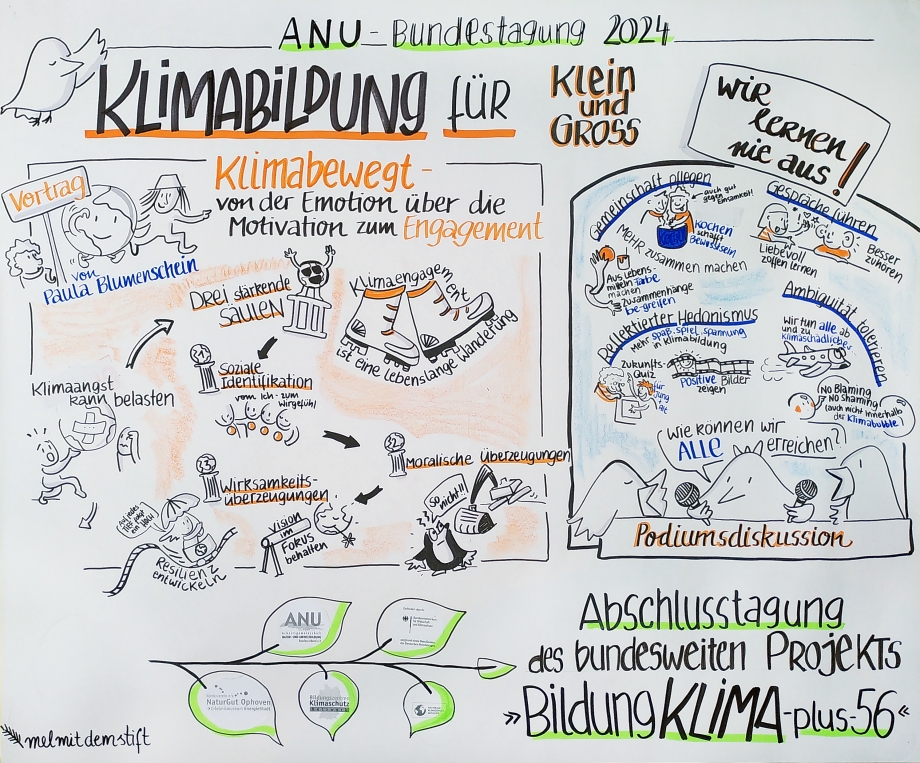 ANU - Bundestagung 2024
KLIMABILDUNG FÜR
Klein
und
GROSS
Wir
lernen
nie aus!
Vortrag
von
Paula Blumenschein
Klimabewegt -
von der Emotion über die
Motivation zum Engagement
Drei stärkende
SÄULEN
Klimaengagement
ist eine Lebenslange Wanderung
Klimaangst
kann belasten
1
Soziale
Identifikation
vom Ich- zum
Wirgefühl
2
Moralische Überzeugungen
So nicht!!
3
Wirksamkeits-
überzeugungen
Vision
im
Fokus
behalten
Auf jedes
Tief folgt
ein Hoch
Resilienz
entwickeln
Gemeinschaft pflegen
auch gut
gegen Einsamkeit!
Kochen
schafft
Bewusstsein
Mehr zusammen machen
Aus Lebens-
mitteln Farbe
machen
Zusammenhänge
be-greifen
Gespräche führen
Liebevoll
zoffen lernen
Besser
zuhören
Reflektierter Hedonismus
Mehr Spaß, Spiel, Spannung
in Klimabildung
Zukunfts-
Quiz
für
Jung
+ Alt
Positive Bilder
zeigen
Ambiguität tolerieren
Wir tun alle ab
und zu
Klimaschädliches
No Blaming
No Shaming!
(auch nicht innerhalb
der Klimabubble)
Wie können wir
ALLE erreichen??
Podiumsdiskussion
ANU
NATUR- UND UMWELTBILDUNG
NaturGut Ophoven
Bildungszentren
Klimaschutz
Abschlusstagung
des bundesweiten Projekts
»BildungKLIMA-plus-56«
melmitdemstift